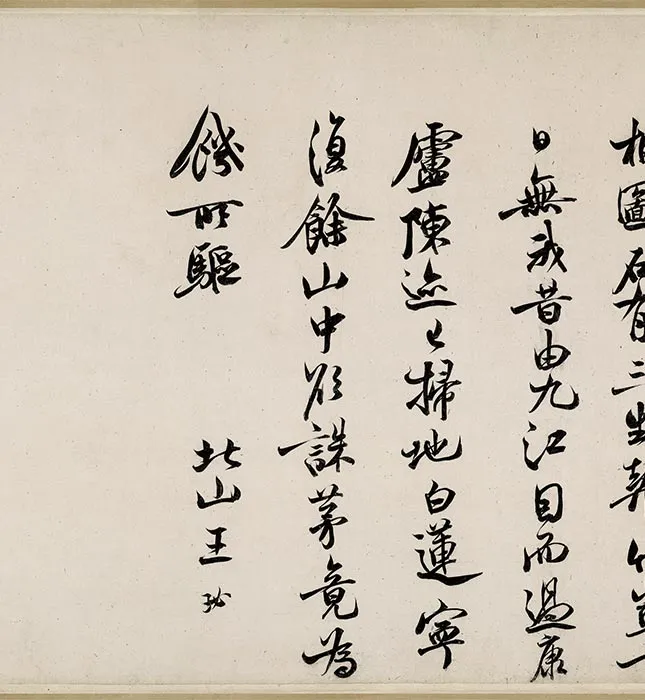 圖石有三生
日無我昔由九江目而過康
廬陳迹已掃地白蓮寧
復餘山中欲誅茅竟為
饑所驅
北山王